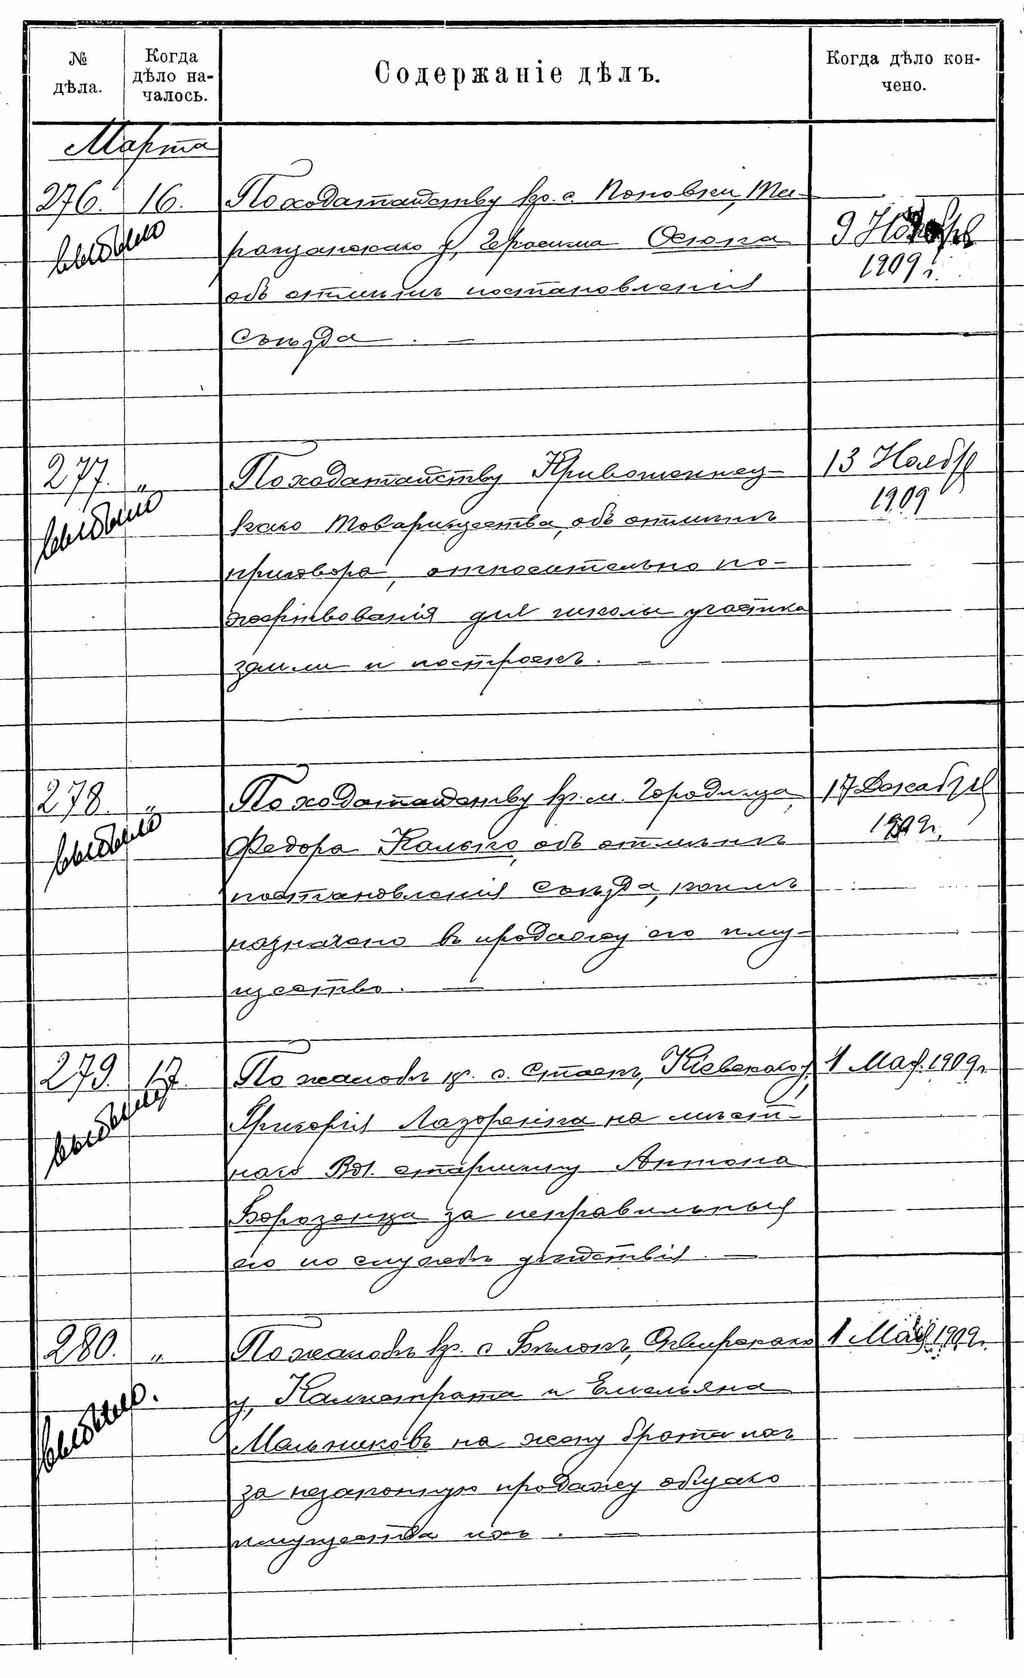 № дѣла.
Когда дѣло началось.
Содержаніе дѣлъ.
Когда дѣло кончено.
Марта
276. 16. По ходатайству кр. с. Поповки, Та-
ращанскаго у, Герасима Осюка
объ отмѣнѣ постановленія
съѣзда. —
9 Ноября
1909 г.
выбыло
277. " По ходатайству
каго товарищества, объ отмѣнѣ
приговора, относительно по-
жертвованія для школы участка
земли и построекъ. —
13 Ноября
1909
выбыло
278. " По ходатайству кр. м. Городища,
Федора объ отмѣнѣ
постановленія съѣзда, коимъ
назначено въ продажу его иму-
щество. —
17 Декабря
1909 г.
выбыло
279. 17. По жалобѣ кр. с. Стаекъ, Кіевскаго у,
Григорія Лазоренка на мѣст-
наго Вол. старшину Антона
Борозенца за неправильныя
его по службѣ дѣйствія. —
1 Мая 1909 г.
выбыло
280. " По жалобѣ кр. с. Бѣлокъ, Сквирскаго
у, Калистрата и Емельяна
Мельниковъ на жену брата ихъ
за незаконную продажу общаго
имущества ихъ. —
1 Мая 1909 г.
выбыло.